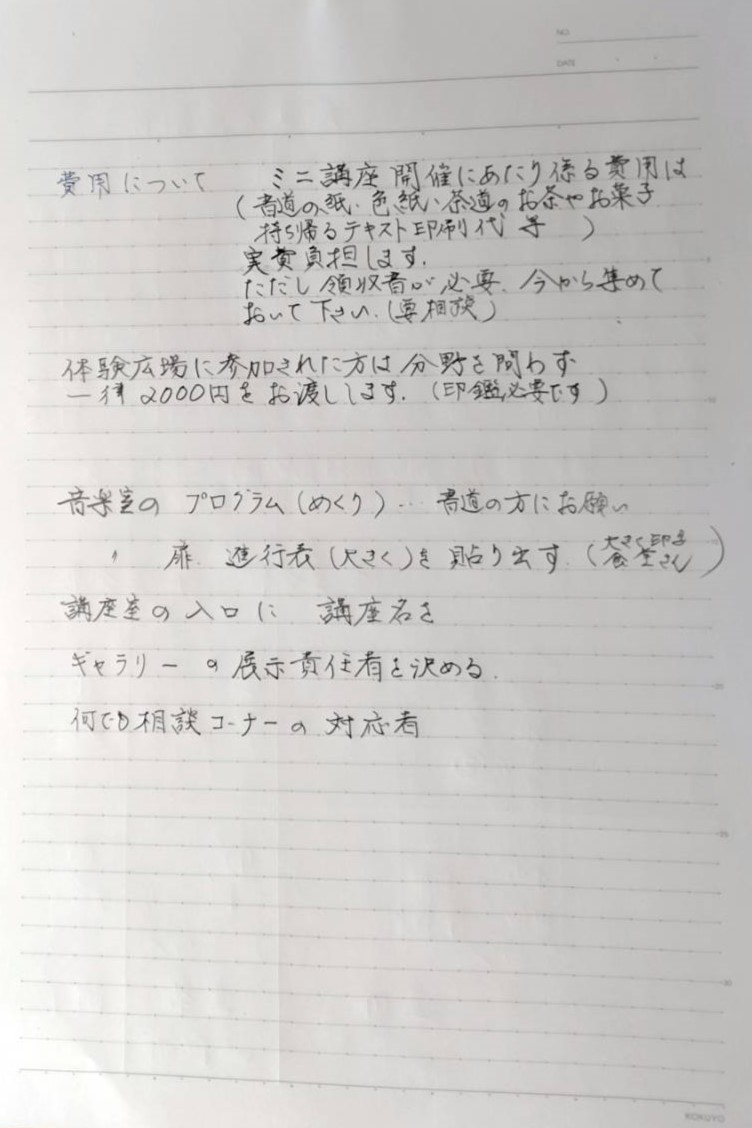 NO.
DATE
費用について ミニ講座開催にあたり係る費用は
(書道の紙、色紙、茶道のお茶やお菓子
持ち帰るテキスト印刷代 等 )
実費負担します.
ただし領収書が必要、今から集めて
おいて下さい.(要相談)
体験広場に参加された方は分野を問わず
一律2000円をお渡しします.(印鑑必要です)
音楽室の プログラム(めくり)… 書道の方にお願い
〃 扉 進行表(大きく)を貼り出す.(大きく印
さん)
講座室の入口に 講座名を
ギャラリーの展示責任者を決める.
何でも相談コーナーの対応者
KOKUYO